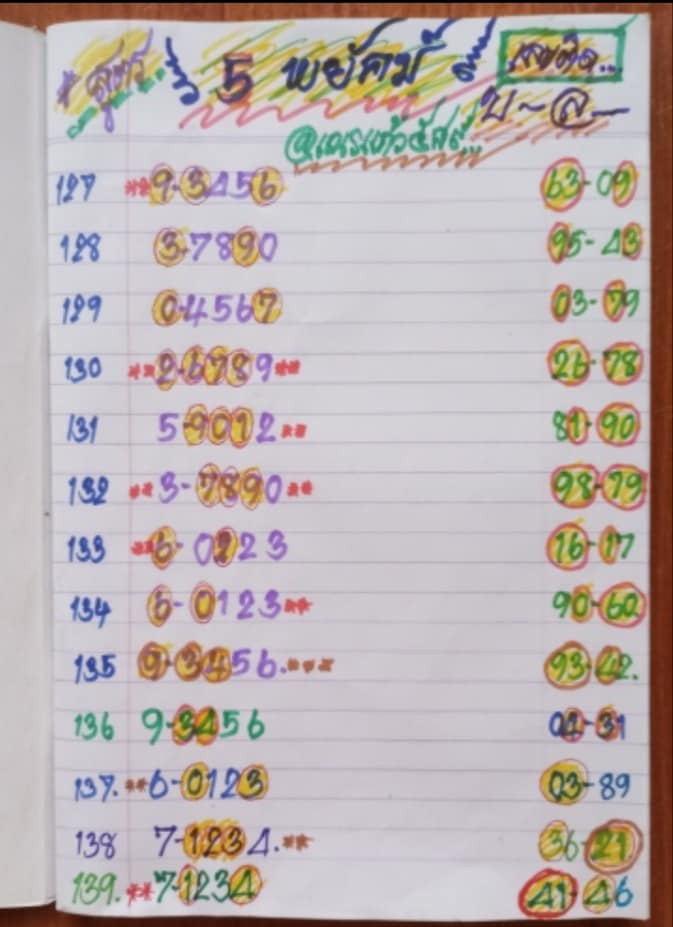 * สูตร 5 พยัคฆ์ เลขติด...
บ~ล~
127 **9-3456 63-09
128 3-7890 95-43
129 0-4567 03-79
130 **2-6789** 26-78
131 5-9012** 81-90
132 **3-7890** 98-79
133 **6-0123 16-17
134 6-0123** 90-60
135 9-3456.*** 93-42.
136 9-3456 04-31
137. **6-0123 03-89
138 7-1234.** 36-21
139. **7-1234 41-46